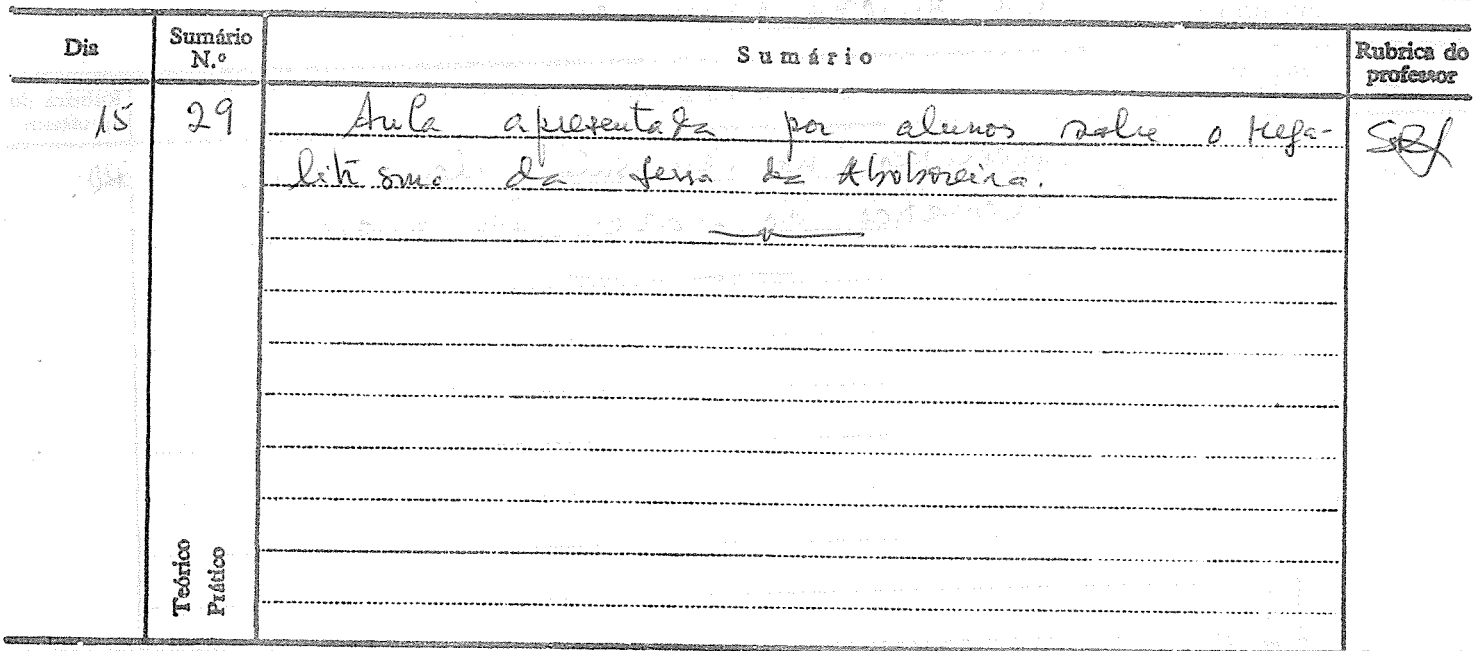 Dia Sumário N.º Sumário Rubrica do professor
15 29 Aula apresentada por alunos sobre o Mega-
litismo da Serra da Aboboreira.
Teórico
Prático